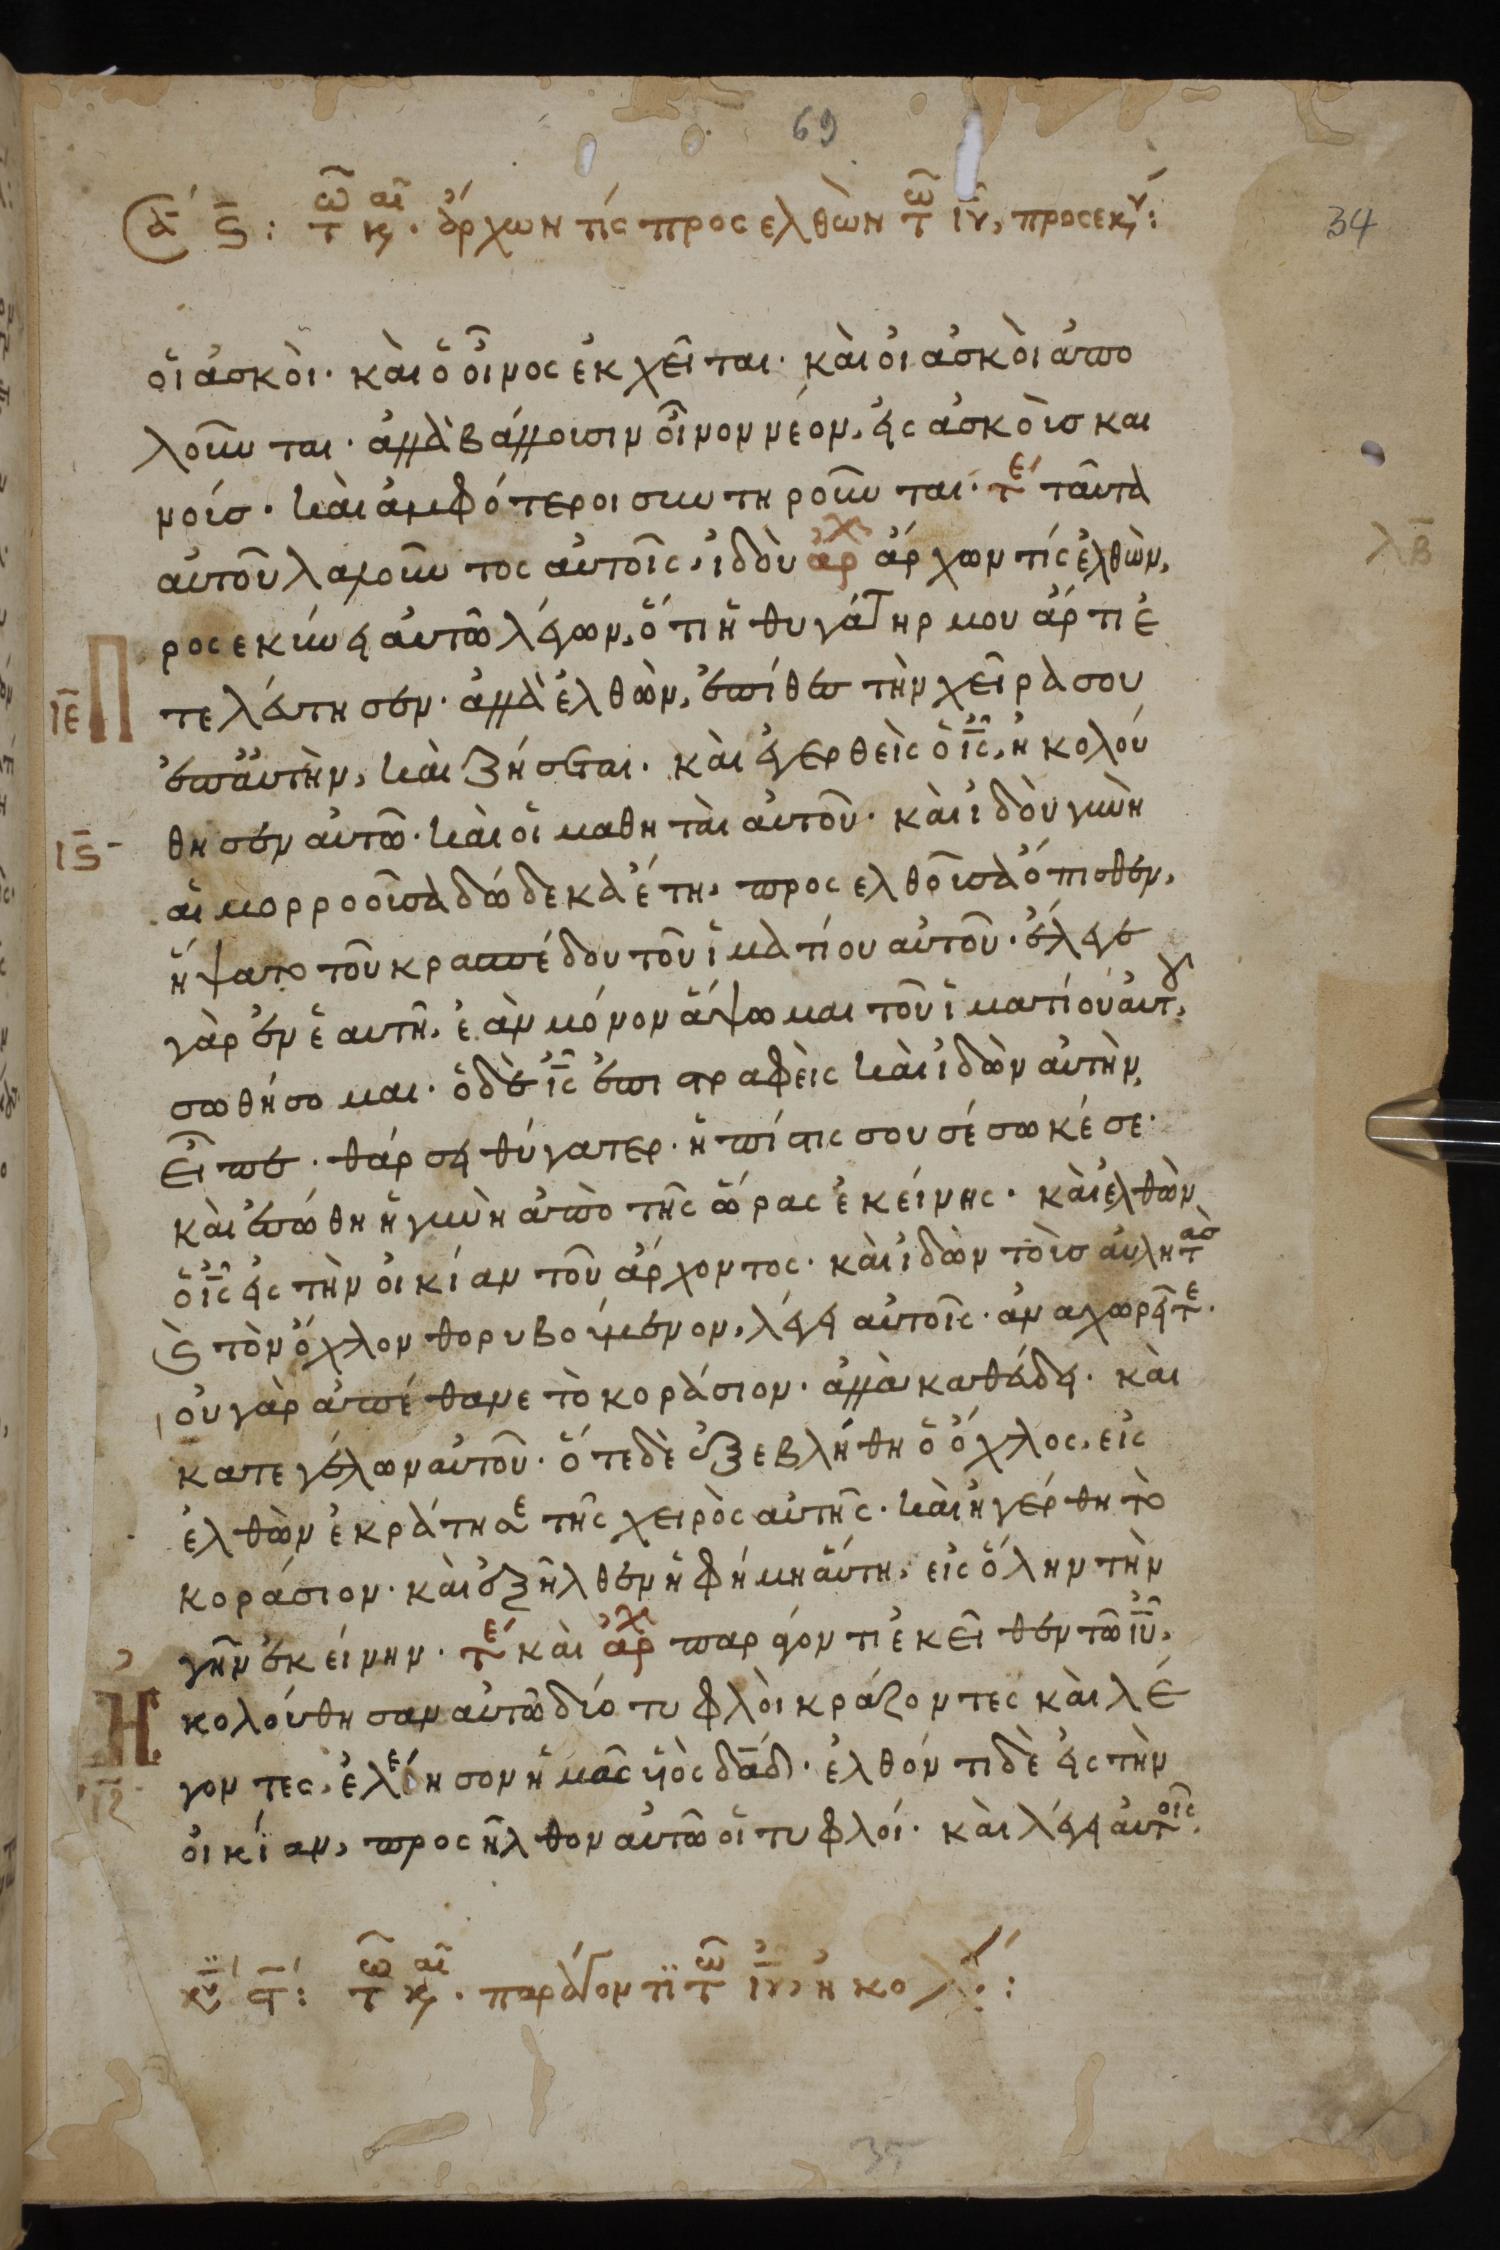 69
Σα´ ϛ̄: τῶ κ,αι. ἄρχων τίς προσελθὼν τῶ ιῦ, προσεκύ:
34
οἱ ἀσκοὶ. καὶ ὁ οἶνος ἐκχεῖται. καὶ οἱ ἀσκοὶ ἀπο
λοῦνται. ἀλλὰ βάλλουσιν οἶνον νέον, εἰς ἀσκοὺς και
νούσ. καὶ ἀμφότεροι συντηροῦνται. τε´ ταῦτα
αὐτοῦ λαλοῦντος αὐτοῖς, ἰδοὺ ἀρχ ἄρχων τίς ἐλθὼν,
λβ̄
ροσεκύνει αὐτῶ λέγων, ὅτι ἡ θυγάτηρ μου ἄρτι ἐ
Π
τελεύτησεν. ἀλλὰ ἐλθὼν, ἐπίθες τὴν χεῖρά σου
ιε̄
ἐπ' αὐτὴν, καὶ ζήσεται. καὶ ἐγερθεὶς ὁ ις̄, ἠκολού
θησεν αὐτῶ. καὶ οἱ μαθηταὶ αὐτοῦ. καὶ ἰδοὺ γυνὴ
ιϛ̄
αἱμορροοῦσα δώδεκα ἔτη, προσελθοῦσα ὄπισθεν,
ἥψατο τοῦ κρασπέδου τοῦ ἱματίου αὐτοῦ. ἔλεγε
γὰρ ἐν ἑαυτῆ, ἐὰν μόνον ἅψωμαι τοῦ ἱματίου αὐτου,
σωθήσομαι. ὁ δὲ ις̄ ἐπιστραφεὶς καὶ ἰδὼν αὐτὴν,
εἶπε. θάρσει θύγατερ. ἡ πίστις σου σέσωκέ σε.
καὶ ἐσώθη ἡ γυνὴ ἀπὸ τῆς ὥρας ἐκείνης. καὶ ἐλθὼν
ὁ ις̄ εἰς τὴν οἰκίαν τοῦ ἄρχοντος. καὶ ἰδὼν τοὺσ αὐλητὰσ
ϗ τὸν ὄχλον θορυβούμενον, λέγει αὐτοῖς. ἀναχωρεῖτε.
οὐ γὰρ ἀπέθανε τὸ κοράσιον. ἀλλὰ καθεύδει. καὶ
κατεγέλων αὐτοῦ. ὅτε δὲ ἐξεβλήθη ὁ ὄχλος, εἰς
ἐλθὼν ἐκράτησε τῆς χειρὸς αὐτῆς. καὶ ἠγέρθη τὸ
κοράσιον. καὶ ἐξῆλθεν ἡ φήμη αὕτη, εἰς ὅλην τὴν
γῆν ἐκείνην. τε´ καὶ ἀρχ παράγοντι ἐκεῖθεν τῶ ιῦ,
Ἠ
κολούθησαν αὐτῶ δύο τυφλοὶ κράζοντες καὶ λέ
γοντες, ἐλέησον ἡμᾶς υἱὸς δᾱδ. ἐλθόντι δὲ εἰς τὴν
ιζ̄
οἰκίαν, προσῆλθον αὐτῶ οἱ τυφλοί. καὶ λέγει αὐτοῖς.
κυ´ ζ̄: τῶ κ,αι. παράγοντι τῶ ιῦ, ἠκολ:
35